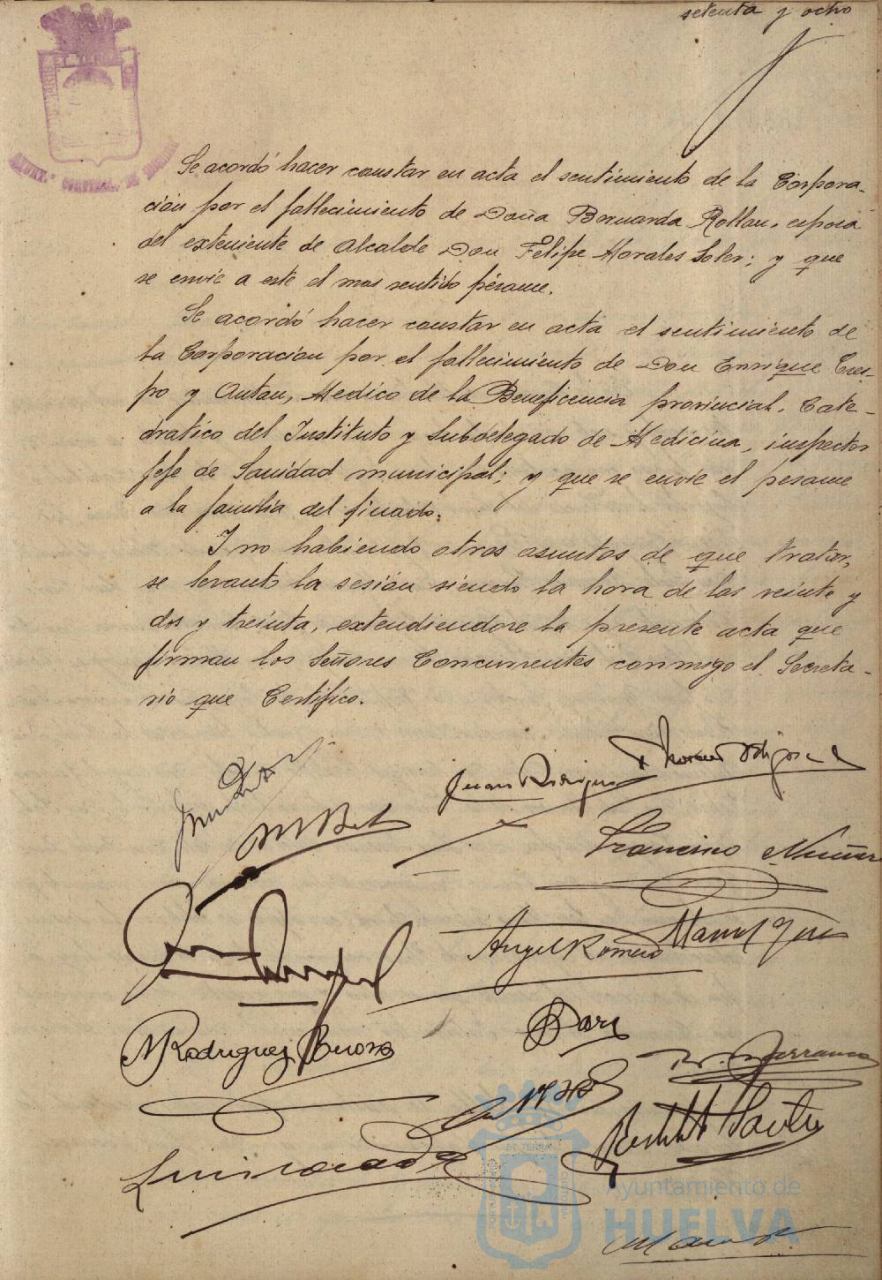 setenta y ocho
Se acordó hacer constar en acta el sentimiento de la Corpora-
ción por el fallecimiento de Doña Bernarda Rollan, esposa
del exteniente de alcalde Don Felipe Morales Soler; y que
se envie a este el mas sentido pésame.
Se acordó hacer constar en acta el sentimiento de
la Corporación por el fallecimiento de Don Enrique Cres-
po y Outan, Medico de la Beneficencia provincial, Cate-
dratico del Instituto y Subdelegado de Medicina, inspector
Jefe de Sanidad municipal; y que se envie el pesame
a la familia del finado.
I no habiendo otros asuntos de que tratar,
se levantó la sesión siendo la hora de las veinte y
dos y treinta, extendiendose la presente acta que
firman los Señores Concurrentes conmigo el Secreta-
rio que Certifico.
Juan Rodriguez
Francisco Nuñez
Angel Romero
M Rodriguez Bueno
Ayuntamiento de
HUELVA